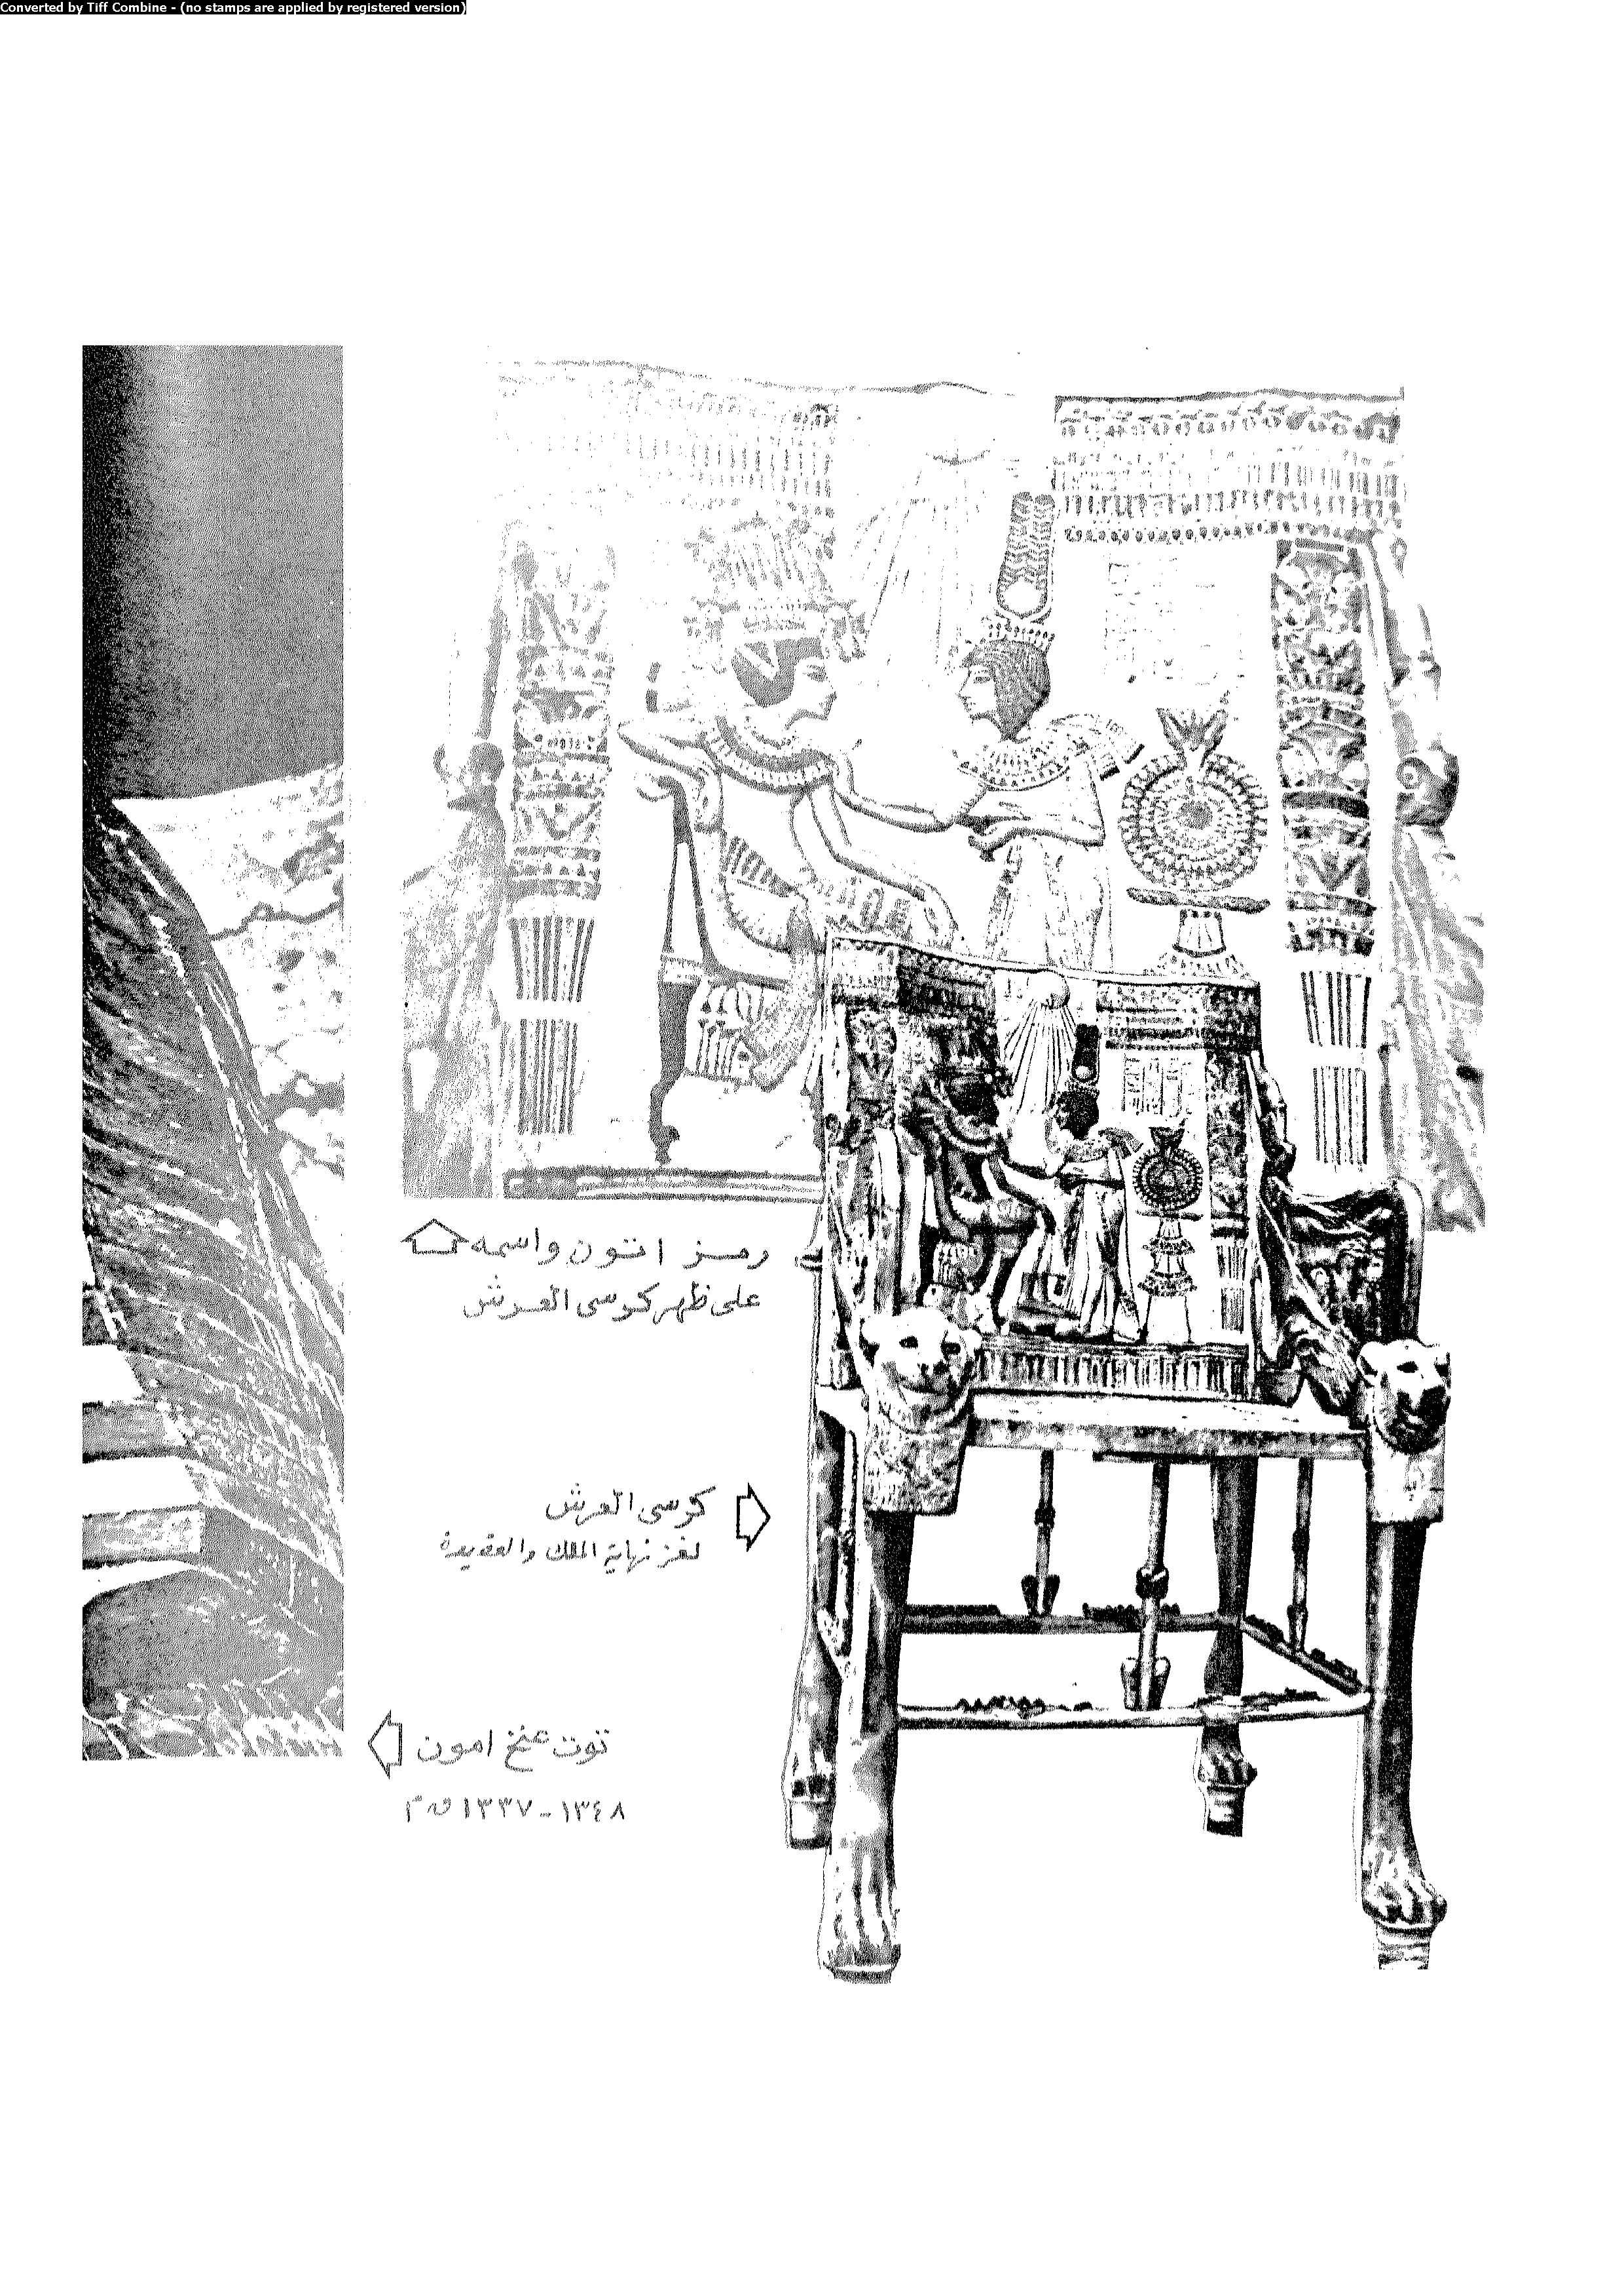 Converted by Tiff Combine - (no stamps are applied by registered version)
رمز اتون واسمه
على ظهر كرسى العرش
كرسى العرش
لغز نهاية الملك والعقيدة
توت عنخ امون
١٣٤٨ - ١٣٣٧ ق م